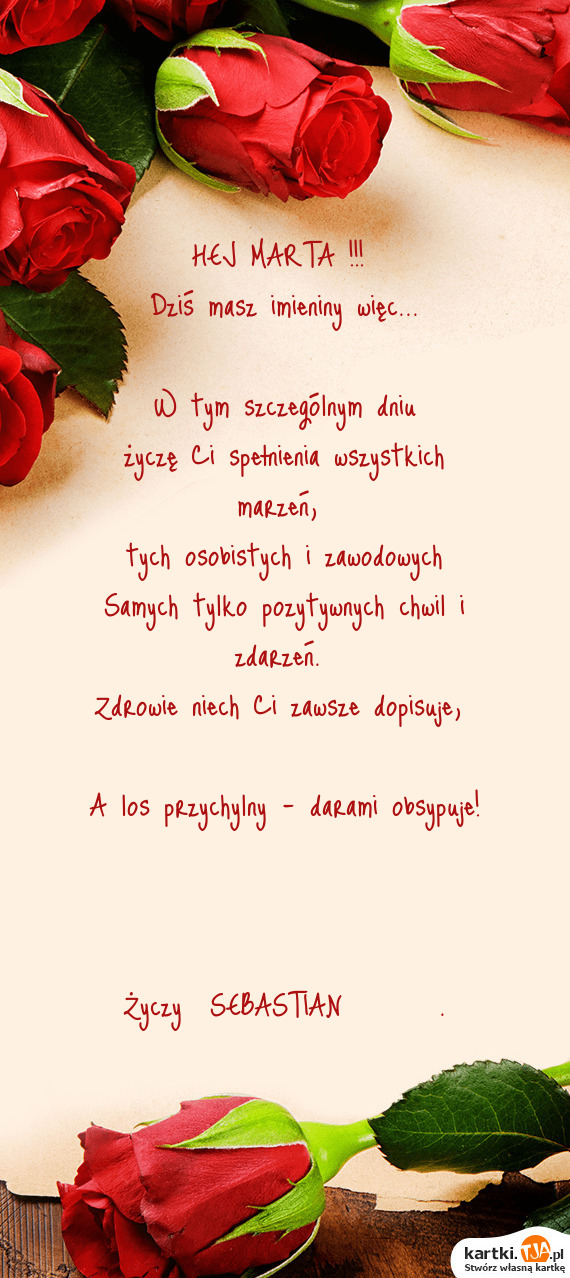 HEJ MARTA !!!
Dziś masz imieniny więc...
W tym szczególnym dniu
życzę Ci spełnienia wszystkich
marzeń,
tych osobistych i zawodowych
Samych tylko pozytywnych chwil i
zdarzeń.
Zdrowie niech Ci zawsze dopisuje,
A los przychylny - darami obsypuje!
Życzy SEBASTIAN .
kartki.TJA.pl
Stwórz własną kartkę